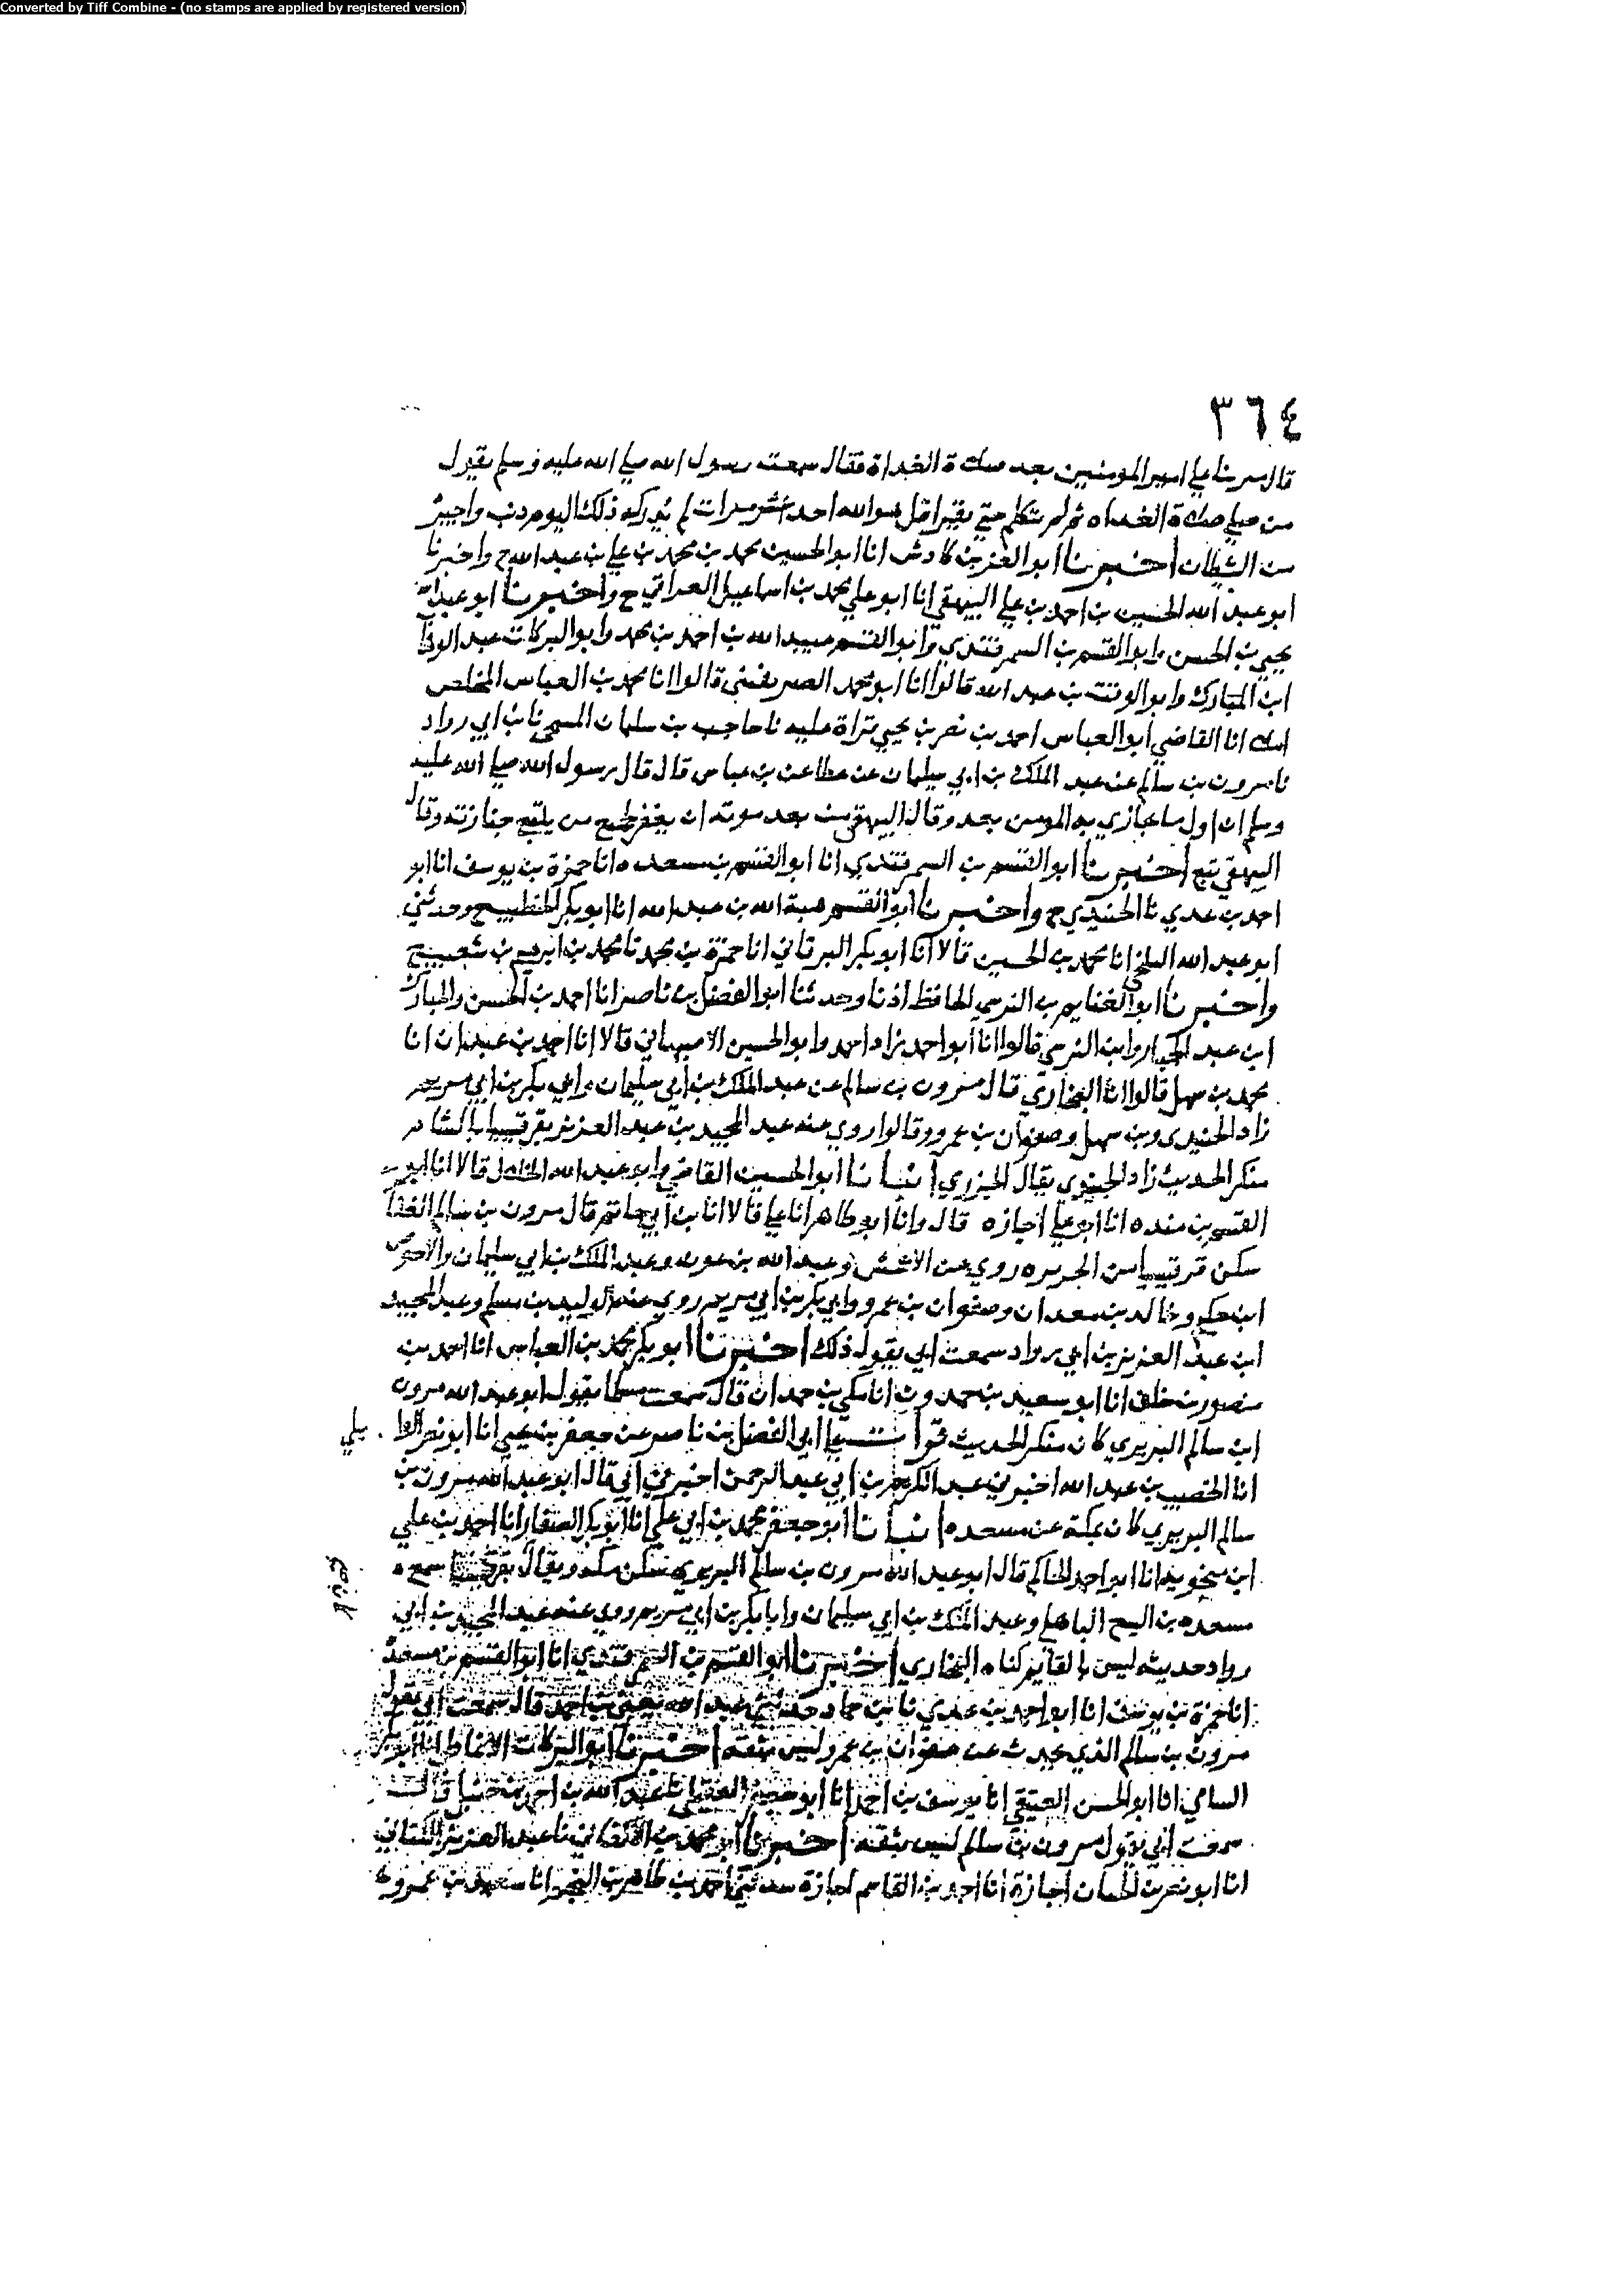 Converted by Tiff Combine - (no stamps are applied by registered version)
٣٦٤
قال مر بنا علي امير المومنين بعد صلاة الغداة فقال سمعت رسول الله صلي الله عليه وسلم يقول
من صلي صلاة الغداه ثم لم يتكلم حتي يقرا قل هو الله احد عشر مرات لم يدركه ذلك اليوم ذنب واجير
من الشيطان اخبرنا ابو العز بن كادش انا ابو الحسين محمد بن محمد بن علي بن عبد الله ح واخبرنا
ابو عبد الله الحسين بن احمد بن علي البيهقي انا ابو علي محمد بن اسماعيل العراقي ح واخبرنا ابو عبد الله
يحيي بن الحسن وابو القسم بن السمرقندي وابو القسم عبيد الله بن احمد بن محمد وابو البركات عبد الوهاب
ابن المبارك وابو الفتح بن عبد الله قالوا انا ابو محمد الصريفيني قالوا انا محمد بن العباس المخلص
انا القاضي ابو العباس احمد بن نصر بن يحيي قراة عليه نا حاجب بن سلمان نا بن ابي رواد
نا مرون بن سالم عن عبد الملك بن ابي سليمان عن عطا عن بن عباس قال قال رسول الله صلي الله عليه
وسلم ان اول ما يجازي به المومن بعد وقال البيهقي من بعد موته ان يغفر لجميع من يتبع جنازته وقال
البيهقي تبع اخبرنا ابو القسم بن السمرقندي انا ابو القسم بن مسعده انا حمزة بن يوسف انا ابو
احمد بن عدي نا الجنيدي ح واخبرنا ابو القسم هبة الله بن عبد الله انا ابو بكر الخطيب ح وحدثني
ابو عبد الله البلخي انا محمد بن الحسين قالا انا ابو بكر البرقاني انا حمزة بن محمد نا محمد بن ابرهيم بن شعيب ح
واخبرنا ابو الغنايم بن النرسي الحافظ اذنا وحدثنا ابو الفضل بن ناصر انا احمد بن الحسن والمبارك
ابن عبد الجبار وابن النرسي قالوا انا ابو احمد زاد احمد وابو الحسين الاصبهاني قالا انا احمد بن عبدان انا
محمد بن سهل قالوا انا البخاري قال مرون بن سالم عن عبد الملك بن ابي سليمان وابي بكر بن ابي مريم
زاد الجنيدي وبن سهل وصفوان بن عمرو وقالوا روي عنه عبد المجيد بن عبد العزيز بقرقيسيا بالشام
منكر الحديث زاد الجنيدي يقال الجزري انبانا ابو الحسين القاضي وابو عبد الله الخلال قالا انا ابو
القسم بن منده انا ابو علي اجازه قال وانا ابو طاهر انا علي قالا انا بن ابي حاتم قال مرون بن سالم
سكن قرقيسيا من الجزيره روي عن الاعمش وعبد الله بن عون وعبد الملك بن ابي سليمان والاحوص
ابن حكيم وخالد بن معدان وصفوان بن عمرو وابي بكر بن ابي مريم روي عنه الوليد بن مسلم وعبد المجيد
ابن عبد العزيز بن ابي رواد سمعت ابي يقول ذلك اخبرنا ابو بكر محمد بن العباس انا احمد بن
منصور بن خلف انا ابو سعيد بن حمدون انا مكي بن حمدان قال سمعت مسلما يقول ابو عبد الله مرون
ابن سالم البربري كان منكر الحديث قرات علي ابي الفضل بن ناصر عن جعفر بن يحيي انا ابو نصر الوا يلي
انا الخصيب بن عبد الله اخبرني عبد الكريم بن ابي عبد الرحمن اخبرني ابي قال ابو عبد الله مرون بن
سالم البربري كان بمكة عن مسعده انبانا ابو جعفر محمد بن ابي علي انا ابو بكر الصفار انا احمد بن علي
ابن منجويه انا ابو احمد الحاكم قال ابو عبد الله مرون بن سالم البربري سكن مكه ويقال بقرقيسيا سمع
مسعده بن اليسع الباهلي وعبد الملك بن ابي سليمان وابا بكر بن ابي مريم روي عنه عبد المجيد بن ابي
رواد حديثه ليس بالقايم كناه البخاري اخبرنا ابو القسم بن السمرقندي انا ابو القسم بن مسعدة
انا حمزة بن يوسف انا ابو احمد بن عدي نا بن حماد حدثني عبد الله يعني بن احمد قال سمعت ابي يقول
مرون بن سالم الذي يحدث عن صفوان بن عمرو ليس بثقة اخبرنا ابو البركات الانماطي انا ابو بكر
السامي انا ابو الحسن العتيقي انا يوسف بن احمد انا ابو جعفر العقيلي نا عبد الله بن احمد بن حنبل قال
سمعت ابي يقول مرون بن سالم ليس بثقة اخبرنا ابو محمد بن الاكفاني نا عبد العزيز الكتاني
انا ابو نصر بن الجبان اجازة انا احمد بن القاسم اجازة حدثني احمد بن طاهر بن النجم انا سعيد بن عمرو